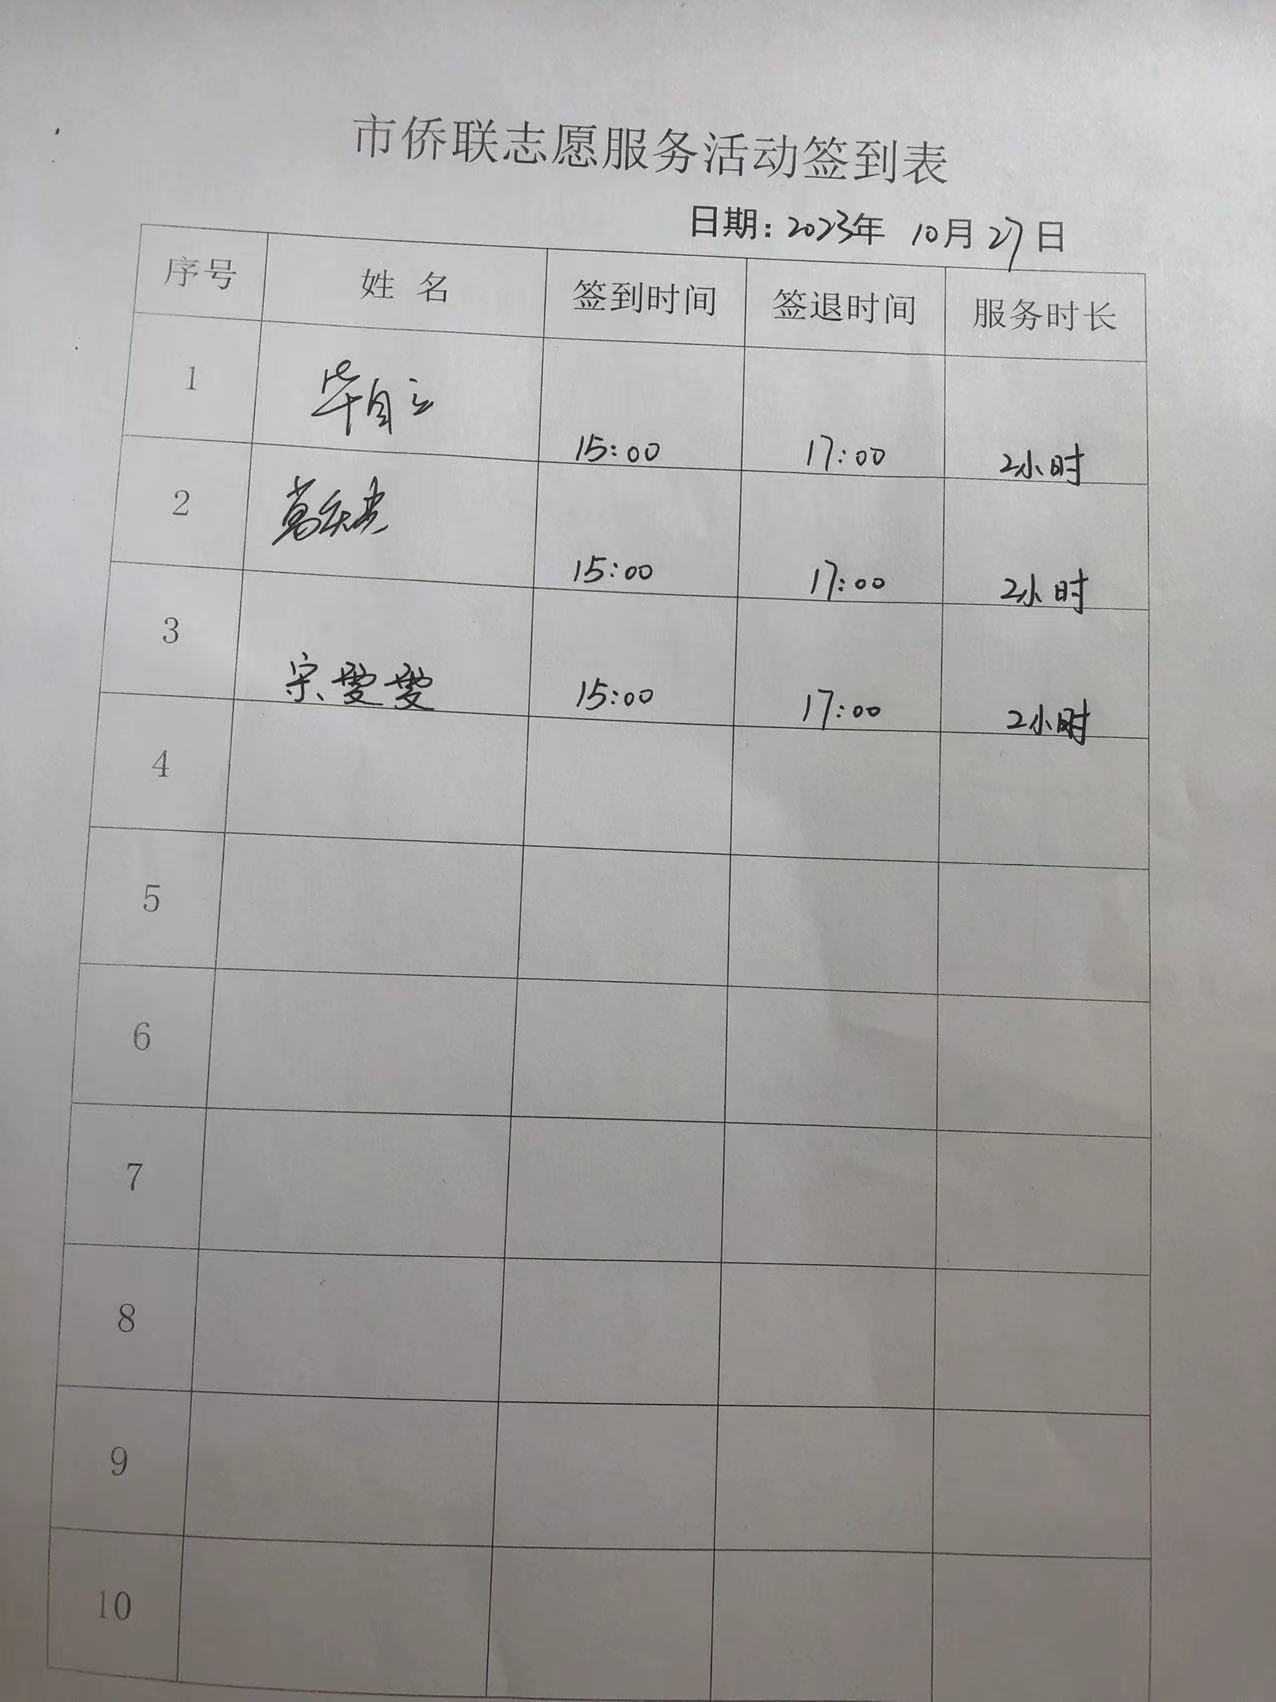 市侨联志愿服务活动签到表
日期：2023年 10月27日
序号 姓名 签到时间 签退时间 服务时长
1 毕自立 15:00 17:00 2小时
2 15:00 17:00 2小时
3 宋雯雯 15:00 17:00 2小时
4
5
6
7
8
9
10